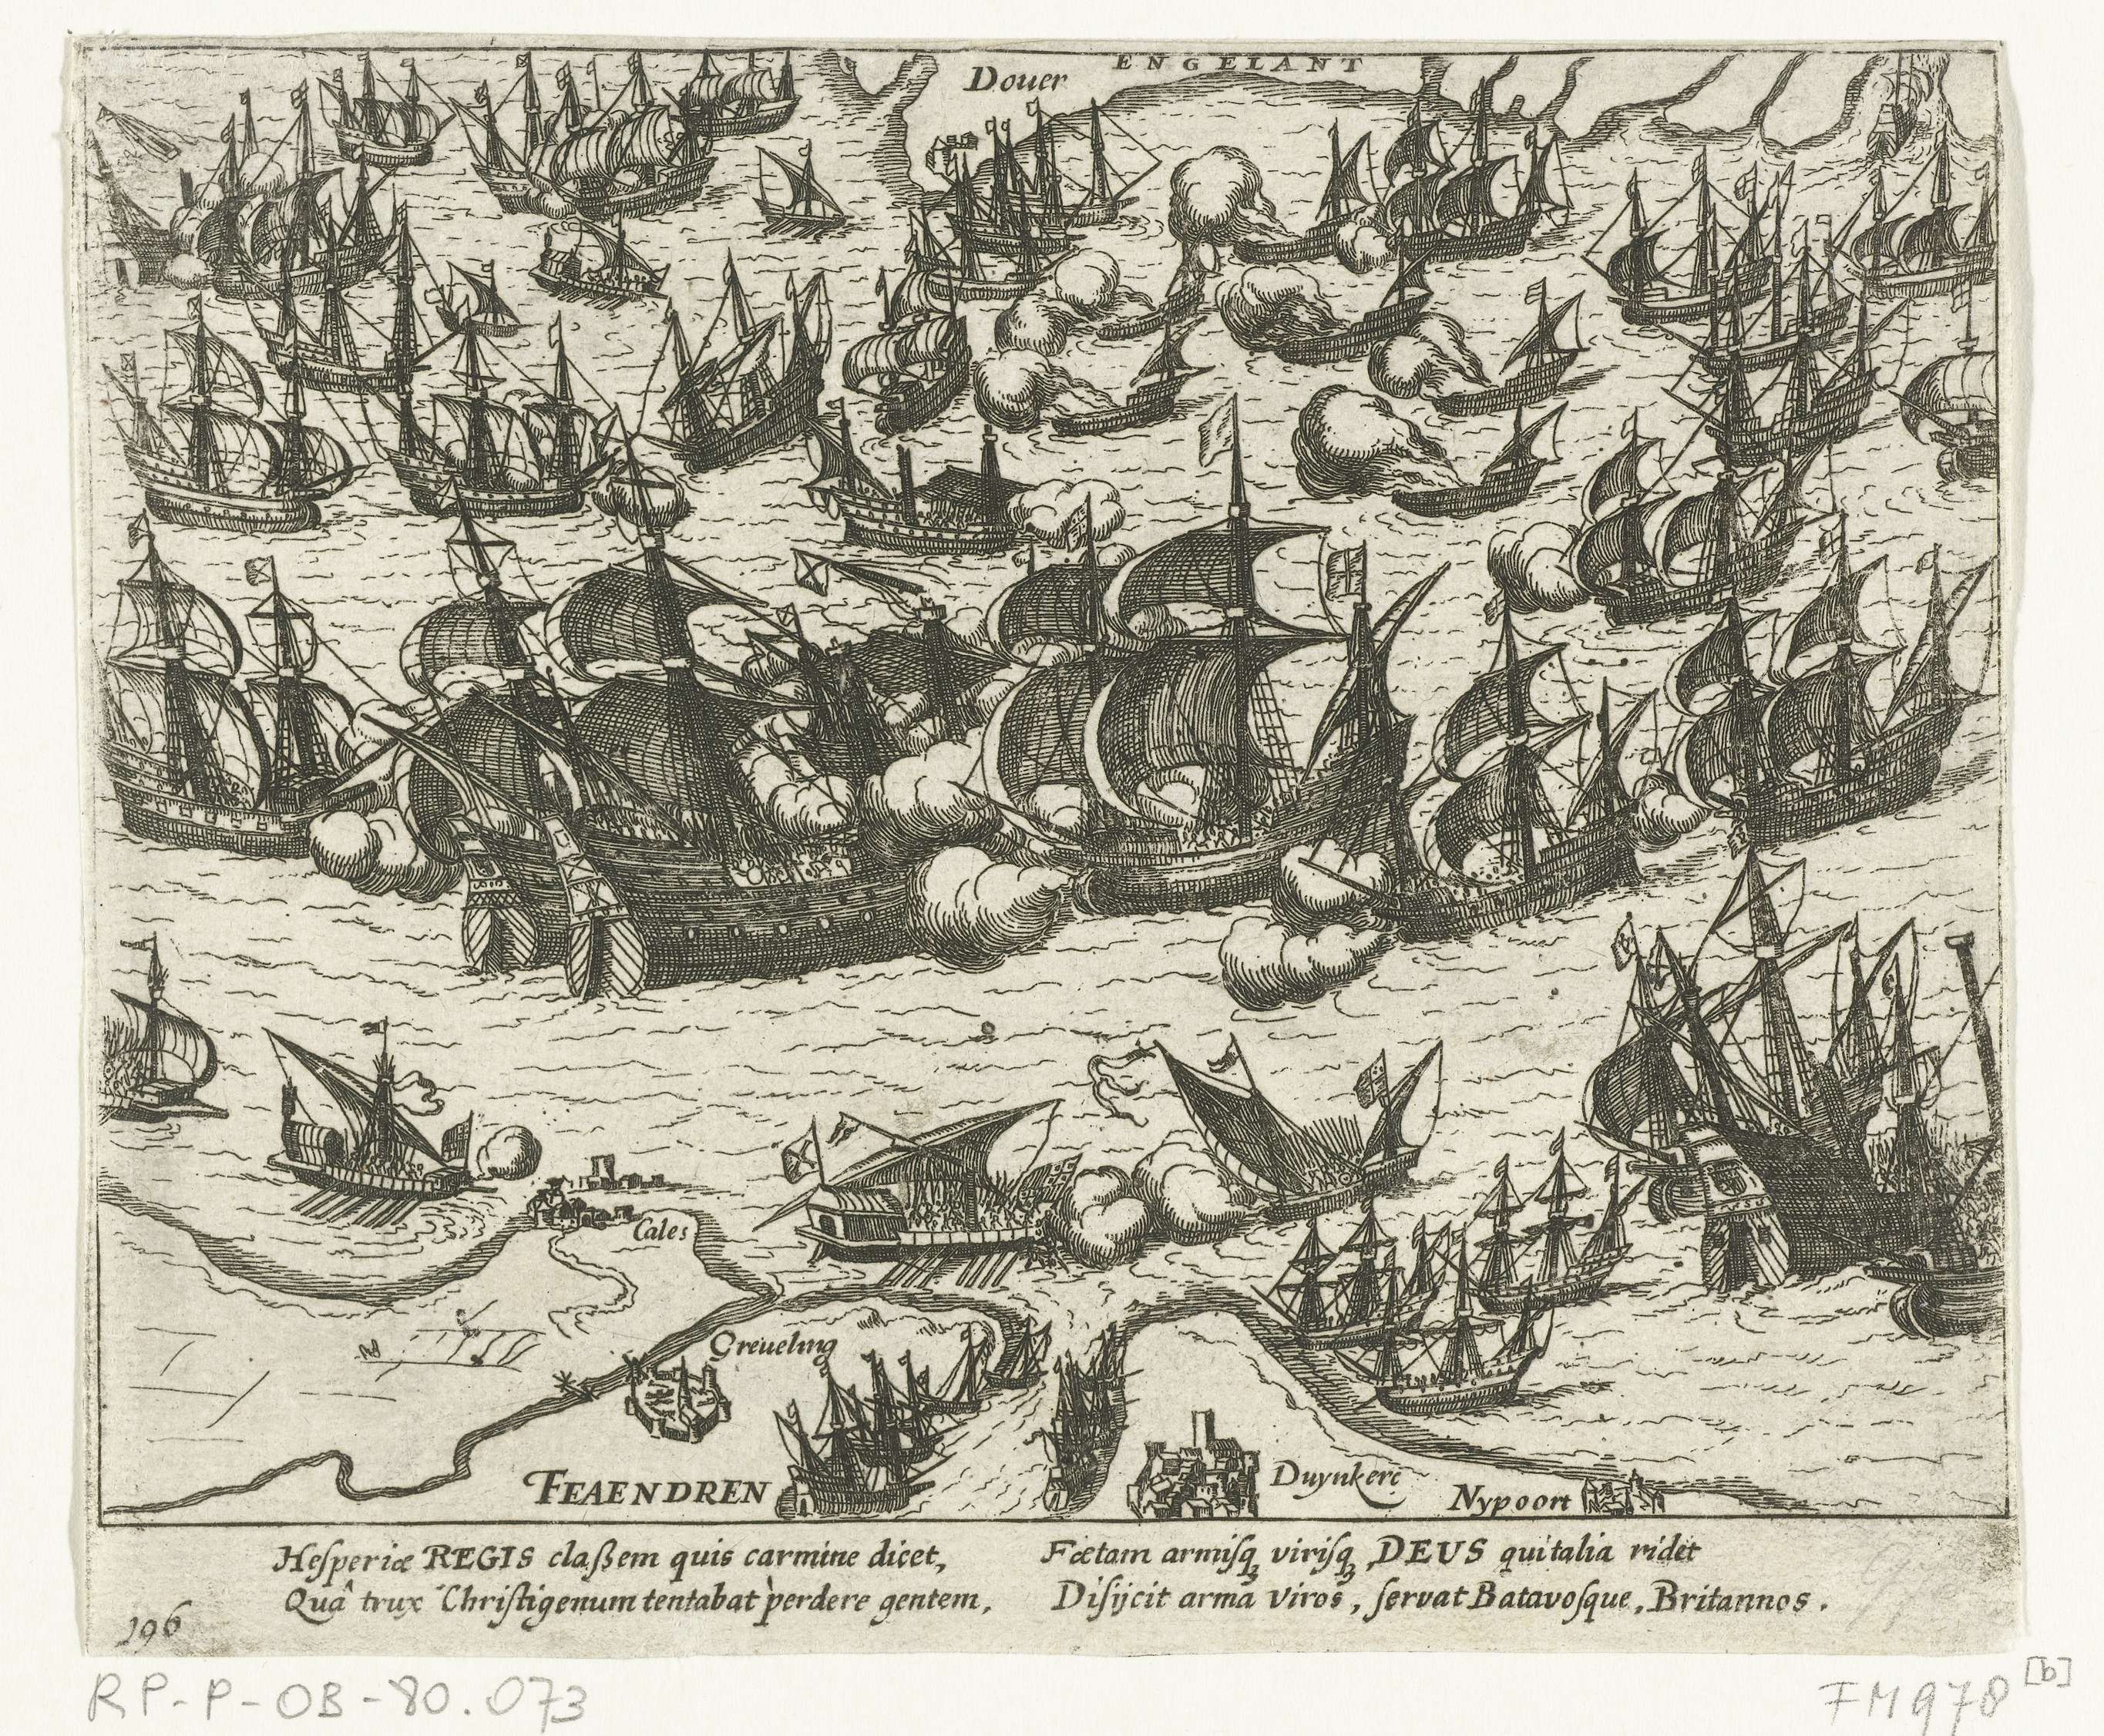 ENGELANT
Douer
Cales
Greueling
FEAENDREN
Duynkerc
Nypoort
Hesperiæ REGIS claßem quis carmine dicet,
Quâ trux Christigenum tentabat perdere gentem,
Fœtam armisq₃ virisq₃, DEUS qui talia ridet
Disijcit arma viros, servat Batavosque, Britannos.
196
RP-P-OB-80.073
FM978 [b]